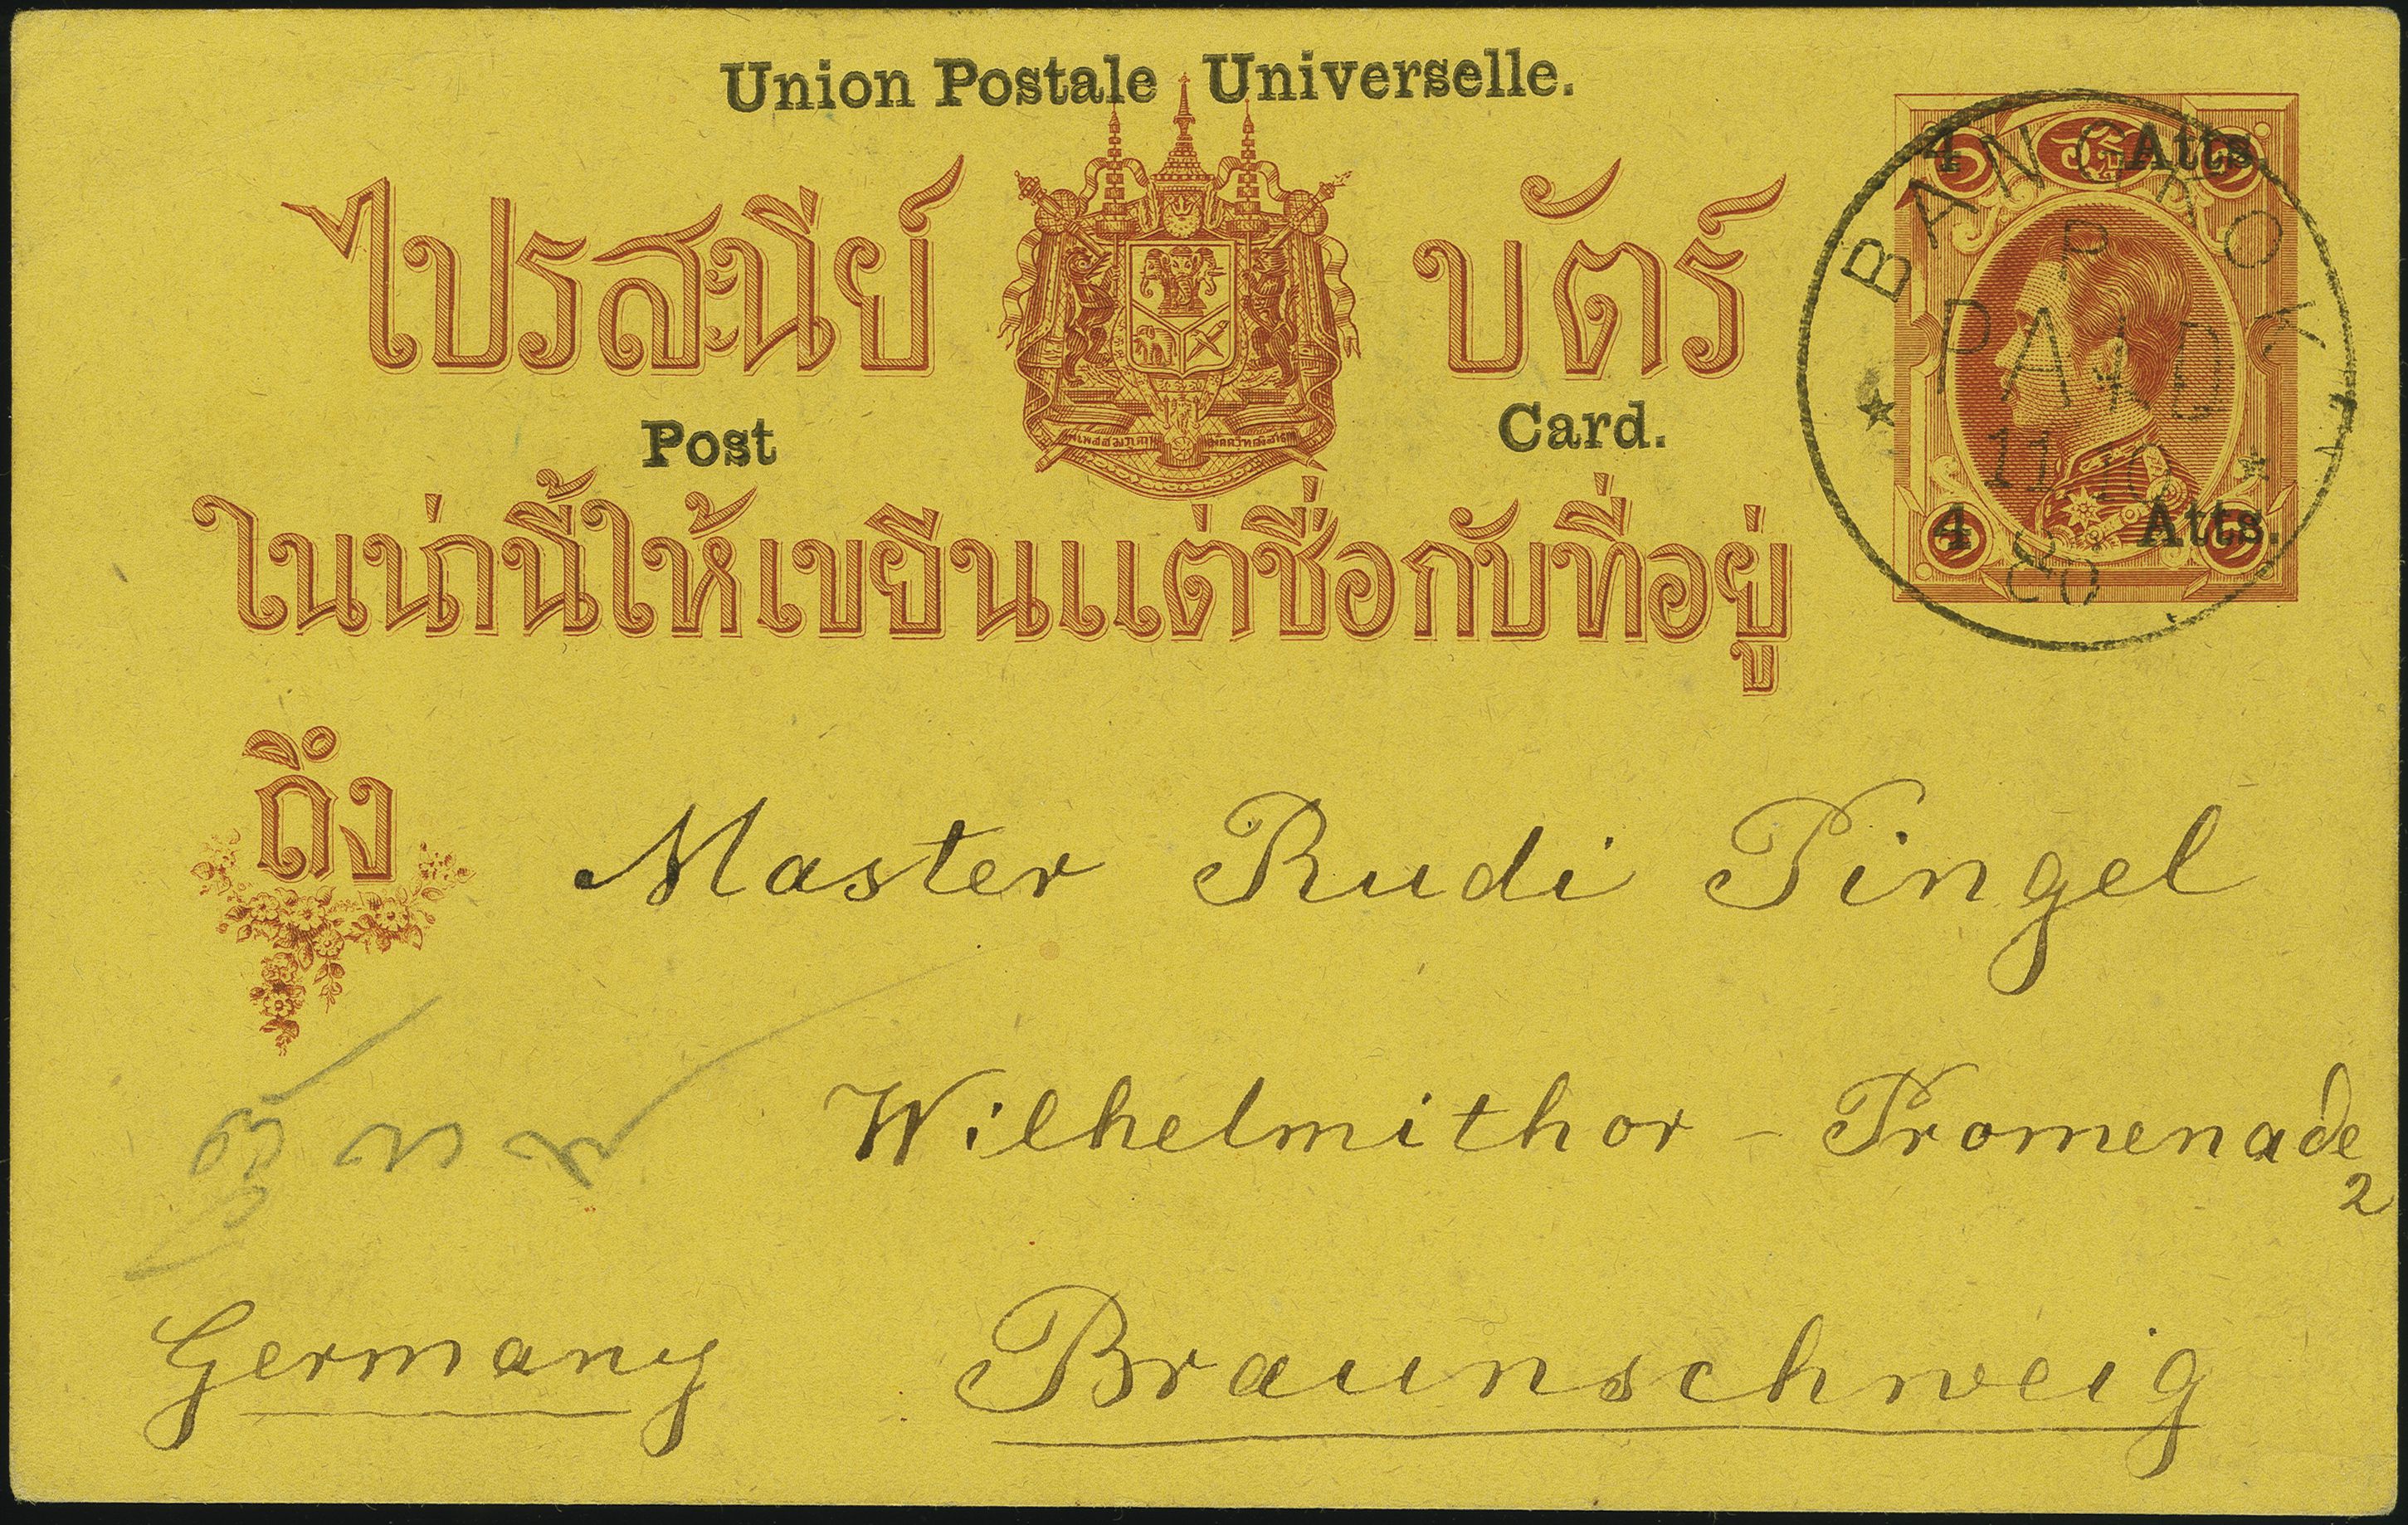 Union Postale Universelle.
4 Atts.
ไปรสะนีย์ บัตร์
BANGKOK
P
PAID
11 10
86
Post Card.
ในน่านี้ให้เขยีนแต่ชื่อกับที่อยู่
4 Atts.
ถึง
Master Rudi Pingel
Wilhelmithor - Promenade
2
Germany Braunschweig